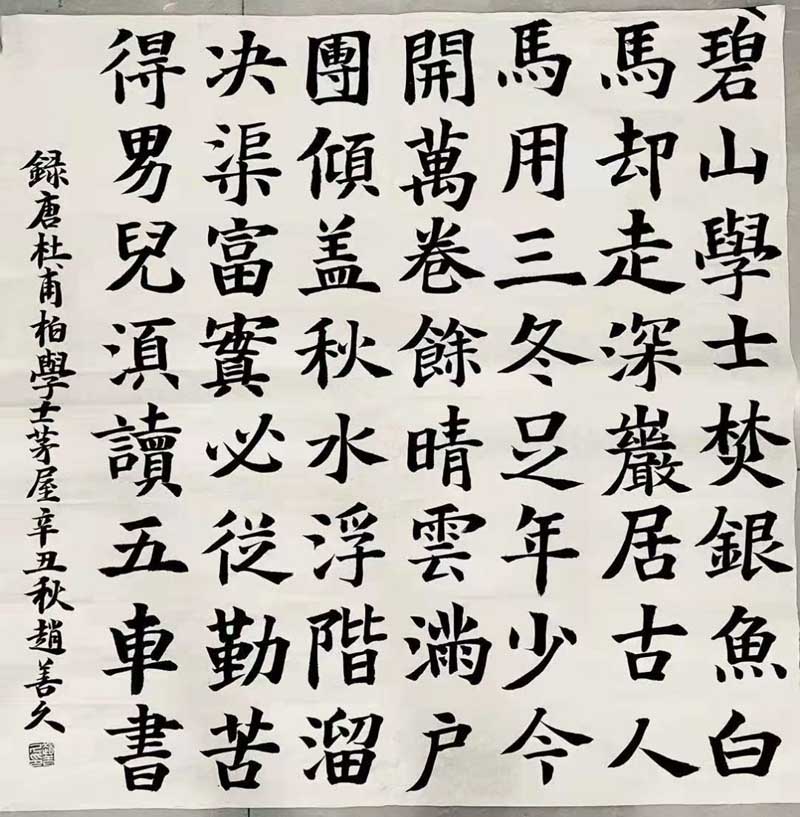 碧山學士焚銀魚白
馬却走深巖居古人
馬用三冬足年少今
開萬卷餘晴雲滿户
團傾盖秋水浮階溜
决渠富實必從勤苦
得男兒湏讀五車書
録唐杜甫柏學士茅屋辛丑秋趙善久